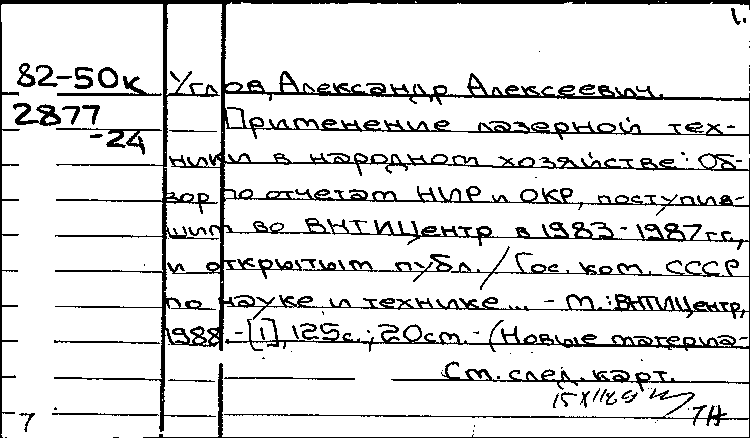 1.
82-50к Углов, Александр Алексеевич.
2877 Применение лазерной тех-
-24
ники в народном хозяйстве: Об-
зор по отчетам НИР и ОКР, поступив-
шим во ВНТИЦентр в 1983-1987 гг.,
и открытым публ. / Гос. ком. СССР
по науке и технике... - М.: ВНТИЦентр,
1988. - [1], 125 с.; 20 см. - (Новые материа-
См. след. карт.
7 ТН